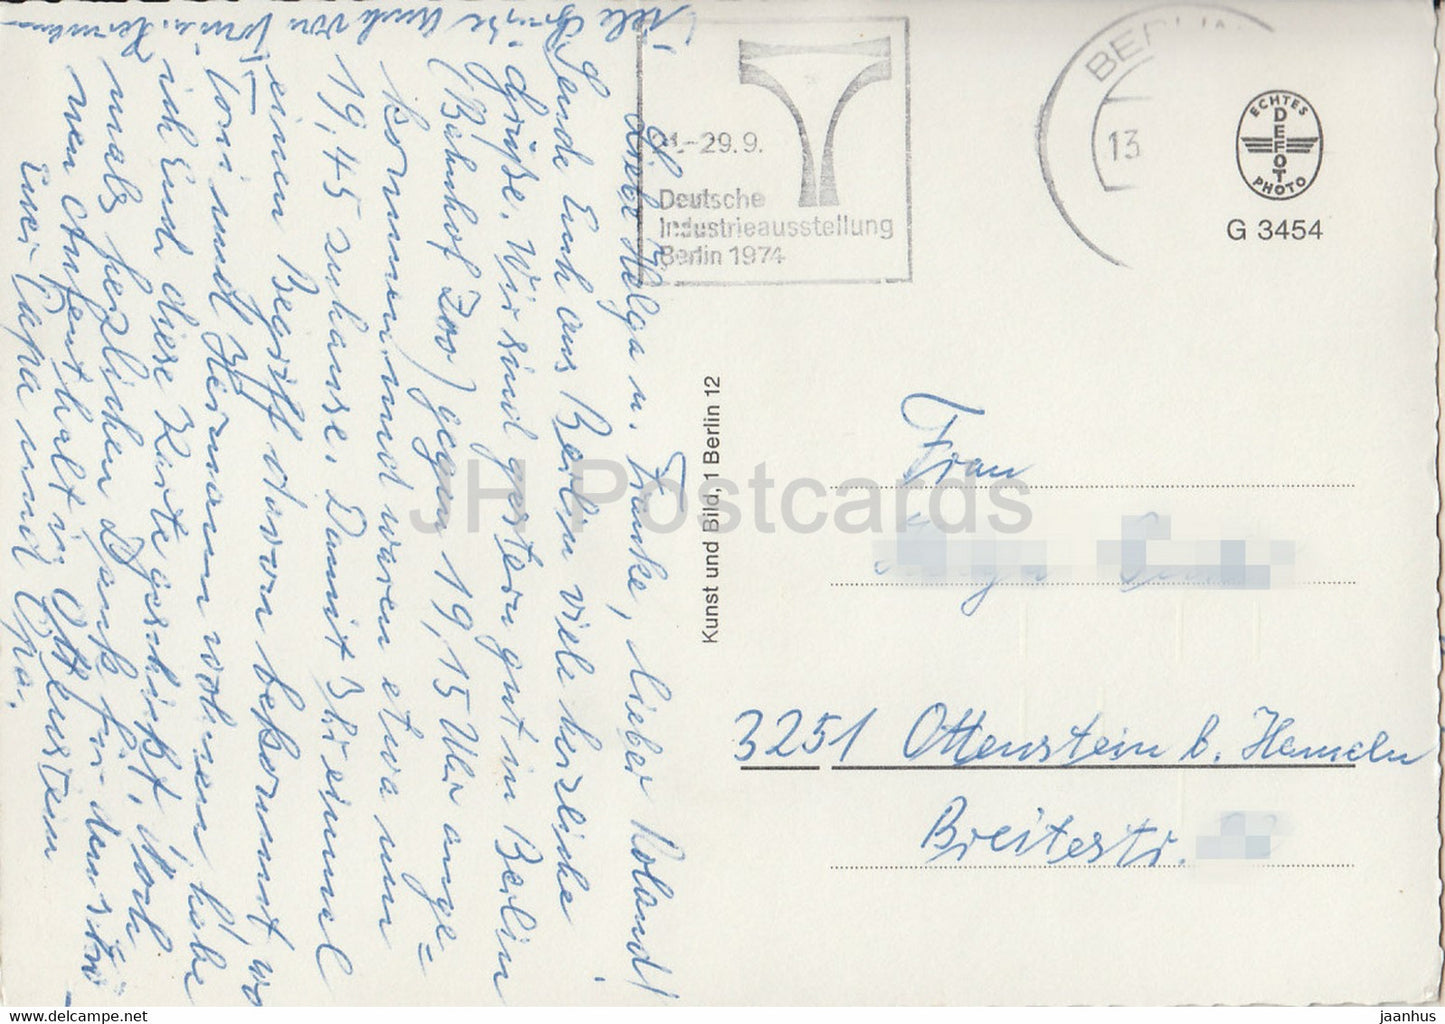 Liebe Helga u. Frauke, lieber Roland!
Sende Euch aus Berlin viele herzliche
Grüße. Wir sind gestern gut in Berlin
(Bahnhof Zoo) gegen 19,15 Uhr ange=
kommen und waren etwa um
19,45 zuhause. Damit Ihr einmal
einen Begriff davon bekommt, wo
Toni und Hermann wohnen habe
ich Euch diese Karte geschickt. Noch
mals herzlichen Dank für den schö-
nen Aufenthalt in Ottenstein
Euer Papa und Opa.
Viele Grüße Auch von Toni u. Hermann
21.-29.9.
Deutsche
Industrieausstellung
Berlin 1974
BERLIN
13
ECHTES
DEFOT
PHOTO
G 3454
Kunst und Bild, 1 Berlin 12
Frau
3251 Ottenstein b. Hameln
Breitestr.
JH Postcards
https://www.ansichtskarte-postcard.com/
jaanhus